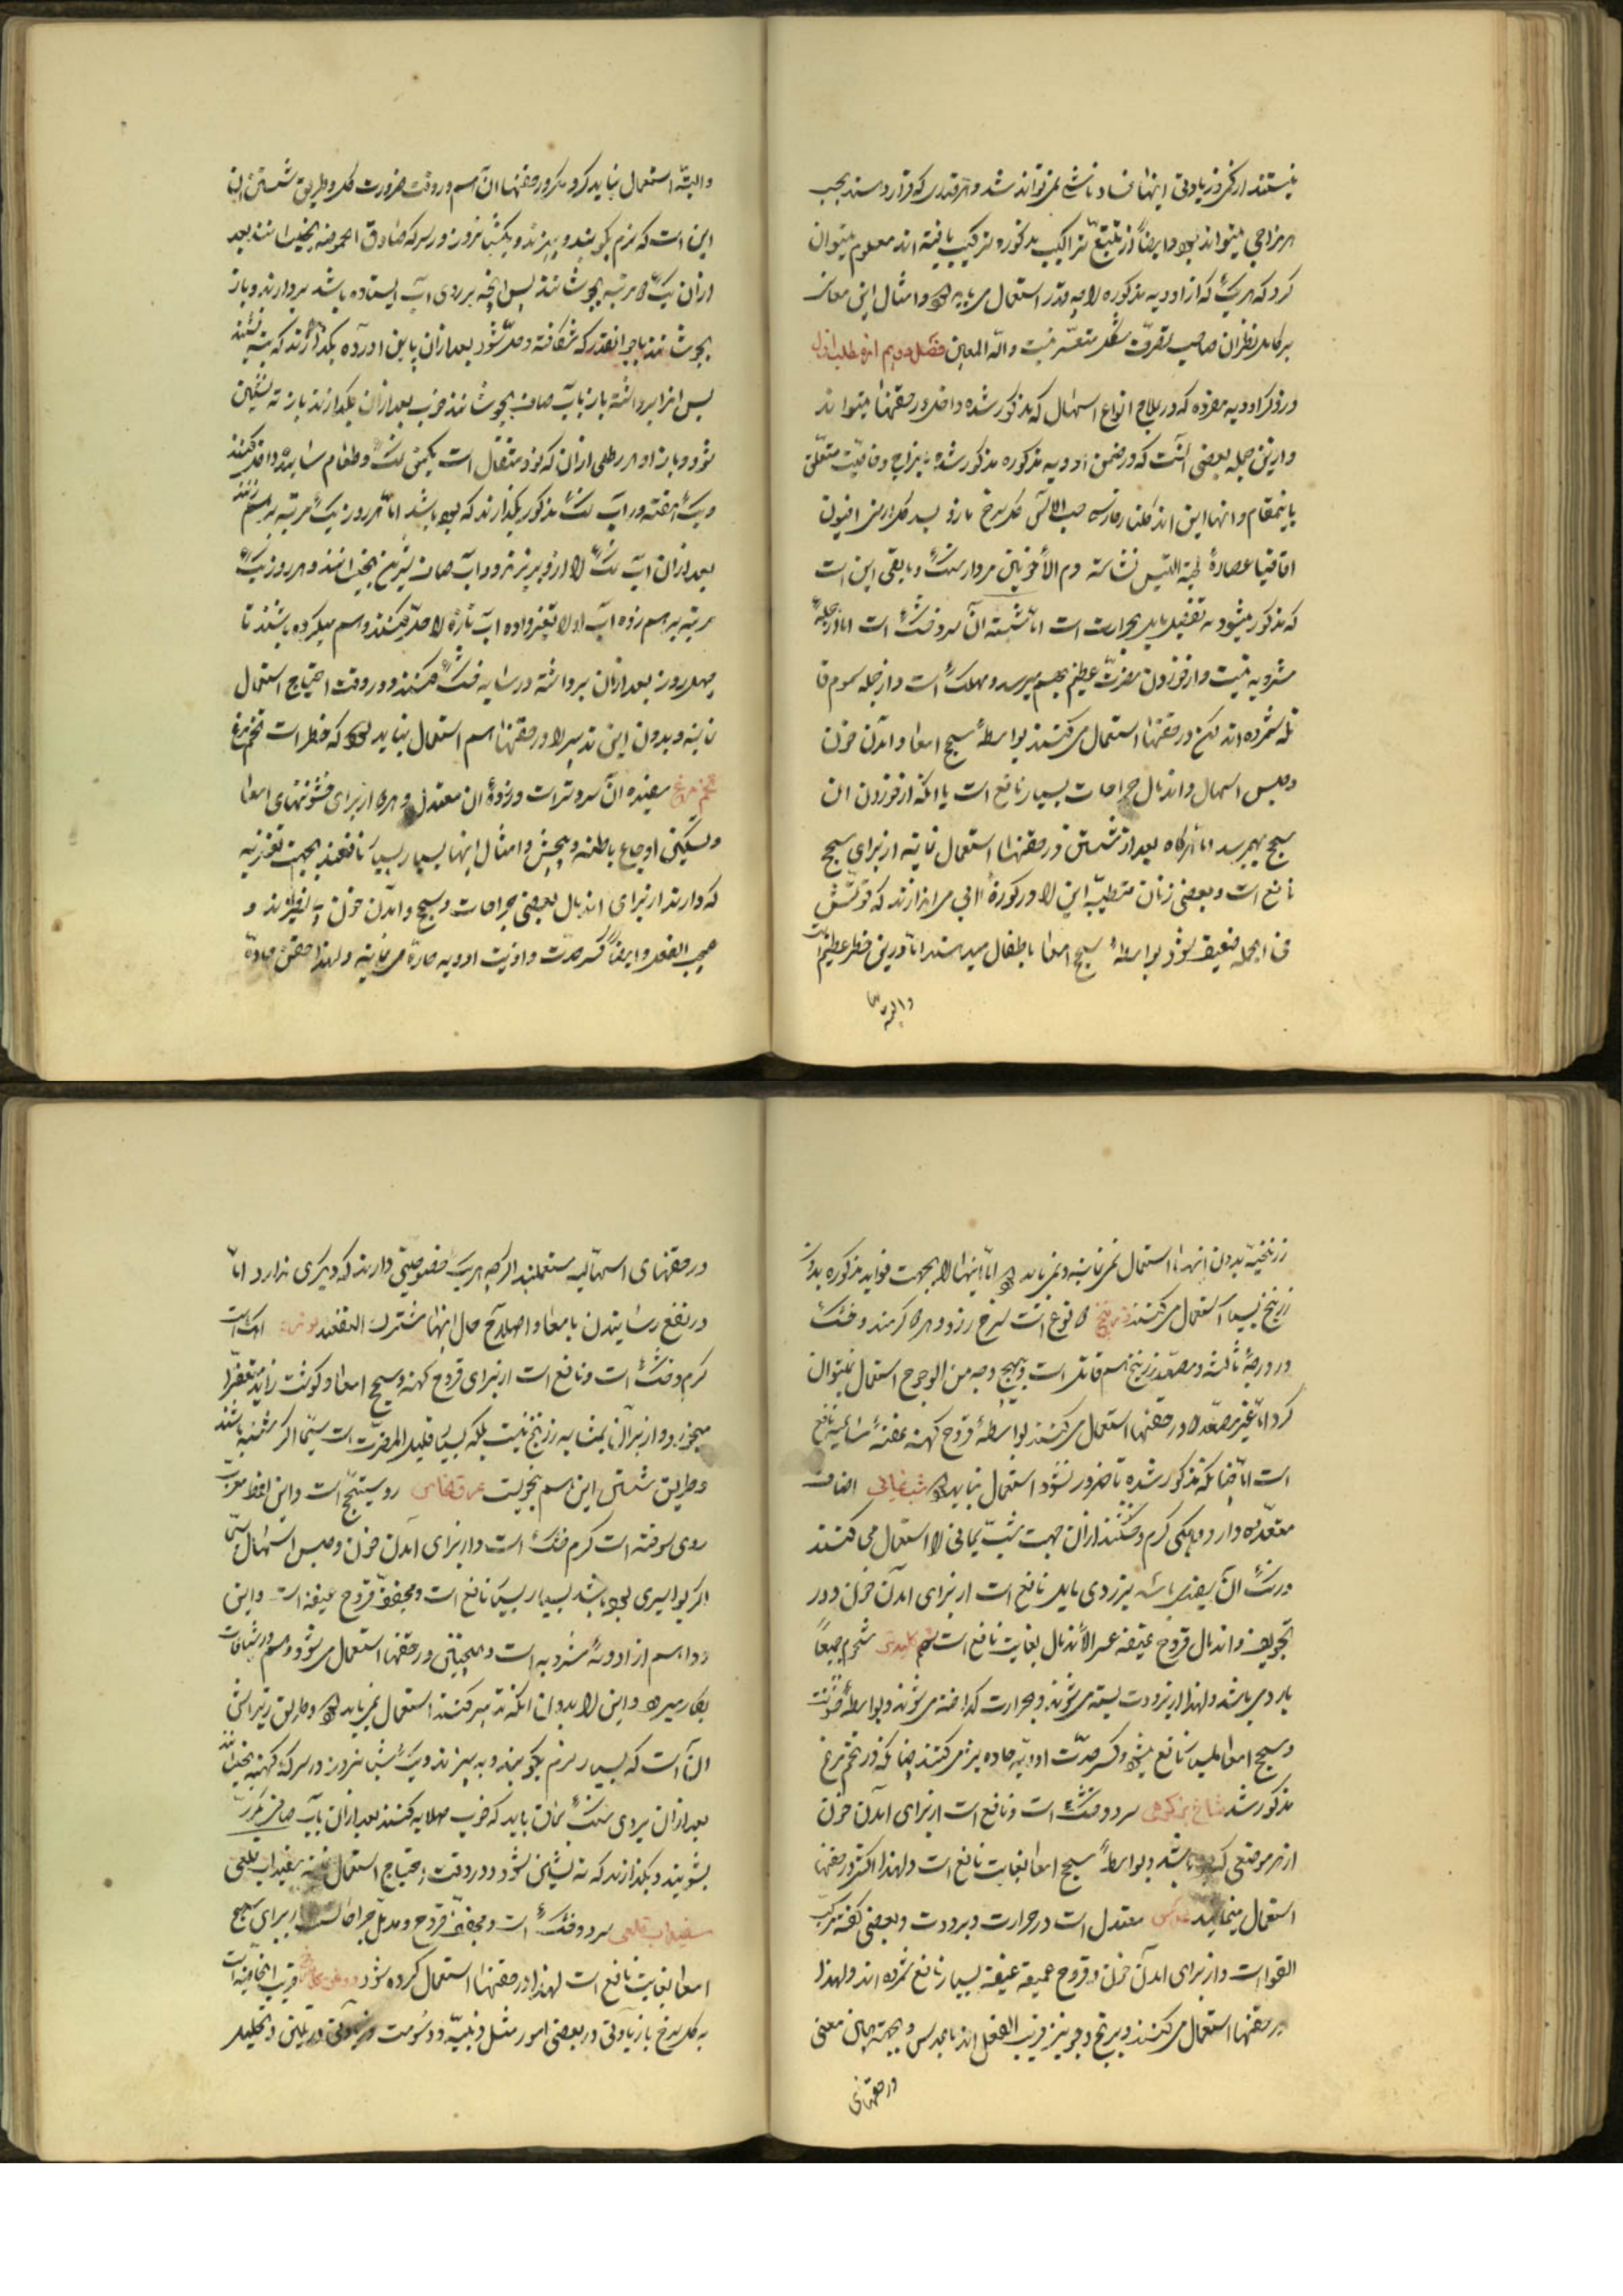 نیستند از کم و زیادتی اینها فساد ناشی نمی‌تواند شد و هر قدری که قرار دهند بحسب
هر مزاجی میتواند بود و ایضاً از تتبع تراکیب مذکوره ترکیب یافته اند معلوم میتوان
کرد که هر یک که از ادویه مذکوره را چه قدر استعمال می باید و امثال این معانی
بر کامل نظران صاحب تصرف مشکل متعسر نیست والله المعین فصل دویم از مطلب اول
در ذکر ادویه مفرده که در علاج انواع اسهال که مذکور شده داخل در حقنها میتواند
و ازین جمله بعضی آنست که در ضمن ادویه مذکوره مذکور شده مزاج و خاصیت متعلق
باینمقام و انها این اند کلنار فارسی حب الآس کل سرخ مازو بسد کل ارمنی افیون
اقاقیا عصاره لحیة التیس نشاسته دم الأخوین مردارسنگ و مابقی این است
که مذکور میشود به تفضیل مایل بحرارت است اما شسته آن سرد و خشک است اما از جمله
مشروبه نیست و از خوردن مضرت عظیم بهم میرسد و مهلک است و از جمله سموم قا
تله شمرده اند لیکن در حقنها استعمال می کنند بواسطه سحج امعا و آمدن خون
و حبس اسهال و اندمال جراحات بسیار نافع است با انکه از خوردن ان
سحج بهم میرسد اما هر کاه بعد از شستن در حقنها استعمال نمایند از برای سحج
نافع است و بعضی زنان متطببه این را در کوزه ابی می اندازند که قوتش
فی الجمله ضعیف شود بواسطه سحج امعا باطفال میدهند اما درین خطر عظیم است
والبته
والبته استعمال نباید کرد مکر در حقنها ان هم در وقت ضرورت کل و طریق شستن ان
این است که نرم بکوبند و بپزند و یکشبانروز در سرکه صادق الحموضه بخیسانند بعد
ازان یک دو مرتبه بجوشانند پس انچه بر روی آب ایستاده باشد بردارند و باز
بجوشانند تا بمرتبه انقدر که شکافته و حل شود بعد ازان پایین اورده بکذارند که ته نشیند
پس انرا برداشته باز باب صاف بجوشانند خوب بعد ازان بکذارند باز ته نشین
شود و باز او هر رطلی ازان که نود مثقال است یکمن نمک و طعام سائیده داخل کنند
و یک هفته در آب نمک مذکور بکذارند که باشد اما هر روز یک مرتبه بر هم زنند
بعد ازان آب نمک را ازو بریزند و در آب صاف شیرین بخیسانند و هر روز یک
مرتبه بر هم زده آب اول را تغییر داده آب تازه داخل میکنند و هم میکرده باشند تا
چهل روز بعد ازان برداشته در سایه خشک میکنند و در وقت احتیاج استعمال
نمایند و بدون این تدبیر را در حقنها هم استعمال نباید کرد که خطر است تخم مرغ
تخم مرغ سفیده ان سردتر است و زرده ان معتدل و هر دو از برای خشونتهای امعا
و تسکین اوجاع باطنه و پیچش و امثال اینها بسیار بسیار نافعند بجهت تغریه
که دارند از برای اندمال بعضی جراحات و سحج و آمدن خون بی نظیرند و
عجیب الفعل و ایضاً کسر حدت و اذیت ادویه حاره می نمایند و لهذا حقن حاده
زرنیخیه بدون اینها استعمال نمی نمایند و نمی باید اما اینها را بجهت فواید مذکوره بدون
زرنیخ بسیار استعمال می کنند زرنیخ دو نوع است سرخ و زرد و هر دو کرمند و خشک
در درجه ثالثه و مصعد زرنیخ سم قاتل است و بهیچ وجه من الوجوه استعمال نمیتوان
کرد اما غیر مصعد را در حقنها استعمال می کنند بواسطه قروح کهنه عفنه ساعیه نافع
است اما چنانکه مذکور شده تا ضرور نشود استعمال نباید کرد شب یمانی اصناف
متعدده دارد و همکی کرم و خشکند ازان جهت شب یمانی را استعمال می کنند
و رنک آن سفیدی باشد بزردی مایل نافع است از برای آمدن خون و در
تجویف و اندمال قروح عتیقه عسر الأندمال بغایت نافع است شحم شحوم جمیعاً
بارد می باشد و لهذا از برودت بسته می شوند و بحرارت کداخته می شوند و بواسطه خشونت
و سحج امعا بسیار نافع میشود و کسر حدت ادویه حاده نیز می کنند چنانکه در تخم مرغ
مذکور شد شاخ بز کوهی سرد و خشک است و نافع است از برای آمدن خون
از هر موضعی که باشد و بواسطه سحج امعا بغایت نافع است و لهذا اکثر در حقنها
استعمال مینمایند عدس معتدل است در حرارت و برودت و بعضی کفته مرکب
القوا است و از برای آمدن خون و قروح عمیقه عتیقه بسیار نافع شمرده اند و لهذا
در حقنها استعمال می کنند و برنج و جو نیز قریب الفعل اند با عدس و بجهت همان معنی
در حقنهای
در حقنهای اسهالیه مستعملند اکر چه هر یک خصوصیتی دارند که دیگری ندارد اما
در نفع رسانیدن بامعا و اصلاح حال انها مشترک النفعند
کرم و خشک است و نافع است از برای قروح کهنه و سحج امعا و کوشت زاید متعفن را
میخورد و از برای آن بمثابه زرنیخ نیست بلکه بسیار قلیل المضرت است سیما اکر شسته باشند
و طریق شستن این هم نحویست روسختج است و این لفظ معرب
روی سوخته است کرم خشک است و از برای آمدن خون و حبس اسهال سیما
اکر بواسیری باشد بسیار بسیار نافع است و مجفف قروح عتیقه است و این
دوا هم از ادویه مشروبه است و همچنین در حقنها استعمال می شود و هم در شیافات
بکار میبرند و این را بدون انکه تدبیر کنند استعمال نمی باید و طریق تدبیر اینش
آنست که بسیار نرم بکوبند و بپزند و یک شبانروز در سرکه کهنه بخیسانند
بعد ازان بر روی سنک سماق باید که خوب صلایه کنند بعد ازان باب صاف مکرر
بشویند و بکذارند که ته نشین شود و در وقت احتیاج استعمال نمایند سفیداب قلعی
سفیداب قلعی سرد و خشک است و مجفف قروح و مدمل جراحات است از برای سحج
امعا بغایت نافع است لهذا در حقنها استعمال کرده شود روغن کل سرخ قریب الخاصیه است
به کل سرخ با زیادتی در بعضی امور مثل دهنیه و دسومت و زیادتی در تلیین و تحلیل